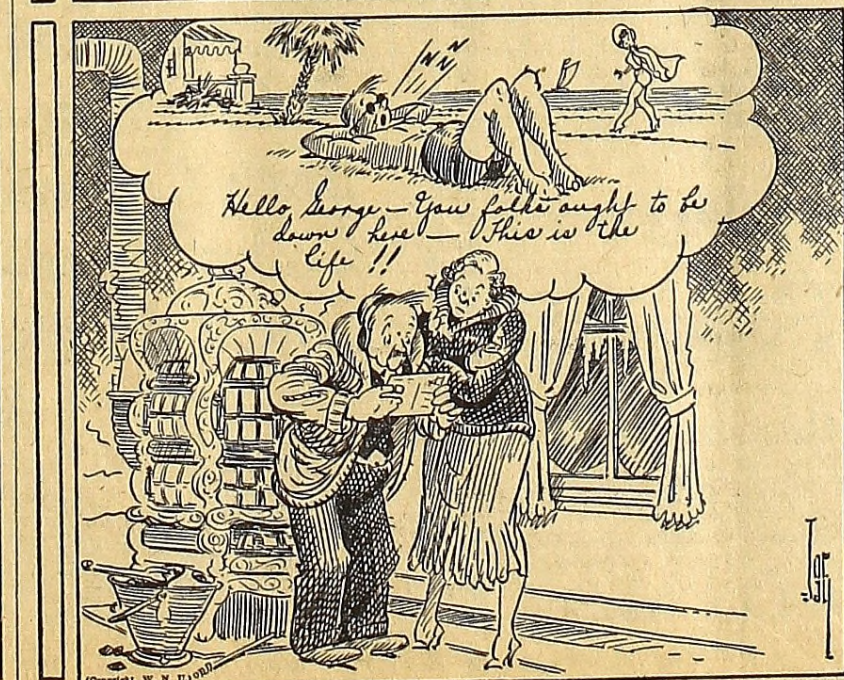 Hello George — You folks ought to be
down here — This is the
life !!
(Copyright, W. N. U.)